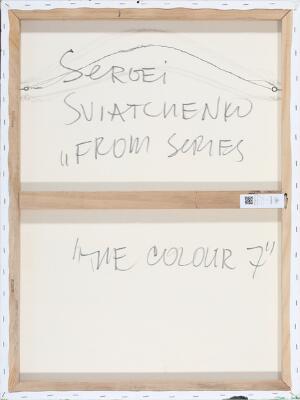 SERGEI
SVIATCHENKO
„FROM SERIES
"THE COLOUR 7"